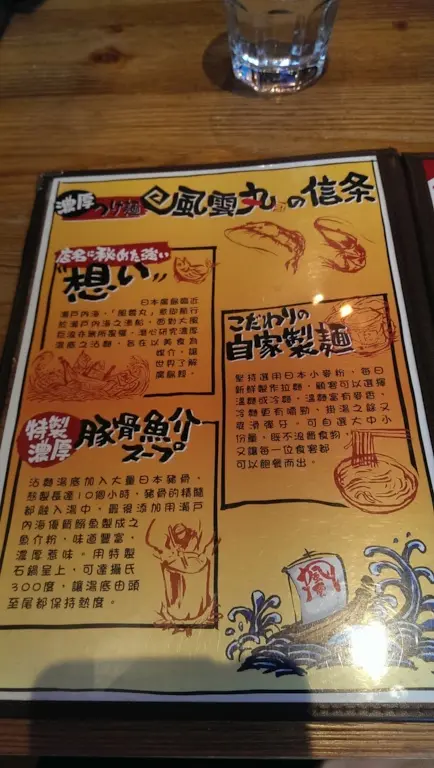 濃厚つけ麺 風雲丸の信条
店名に秘めた強い
"想い"
日本廣飯臨近
瀨戶內海,「風雲丸」意即航行
於瀨戶內海之漁船,面對大風
巨浪在無所畏懼,潛心研究濃厚
湯底之沾麵,旨在以美食為
媒介,讓
世界了解
廣飯程。
こだわりの
自家製麺
堅持選用日本小麥粉,每日
新鮮製作拉麵,顧客可以選擇
溫麵或冷麵,溫麵富有麥香,
冷麵更有嚼勁,掛湯之餘又
爽滑彈牙。可自選大中小
份量,既不浪費食物,
又讓每一位食客都
可以飽餐而出。
特製
濃厚
豚骨魚介
スープ
沾麵湯底加入大量日本豬骨,
熬製長達10個小時,豬骨的精髓
都融入湯中,最後添加用瀨戶
內海優質鯷魚製成之
魚介粉,味道豐富,
濃厚惹味。用特製
石鍋呈上,可達攝氏
300度,讓湯底由頭
至尾都保持熱度。